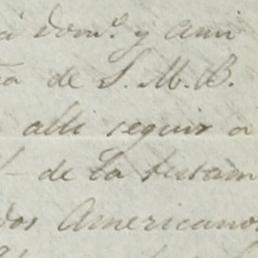 á dom.º y ami
ra de S. M. B.
alli seguir a
de la testam
dos Americanos